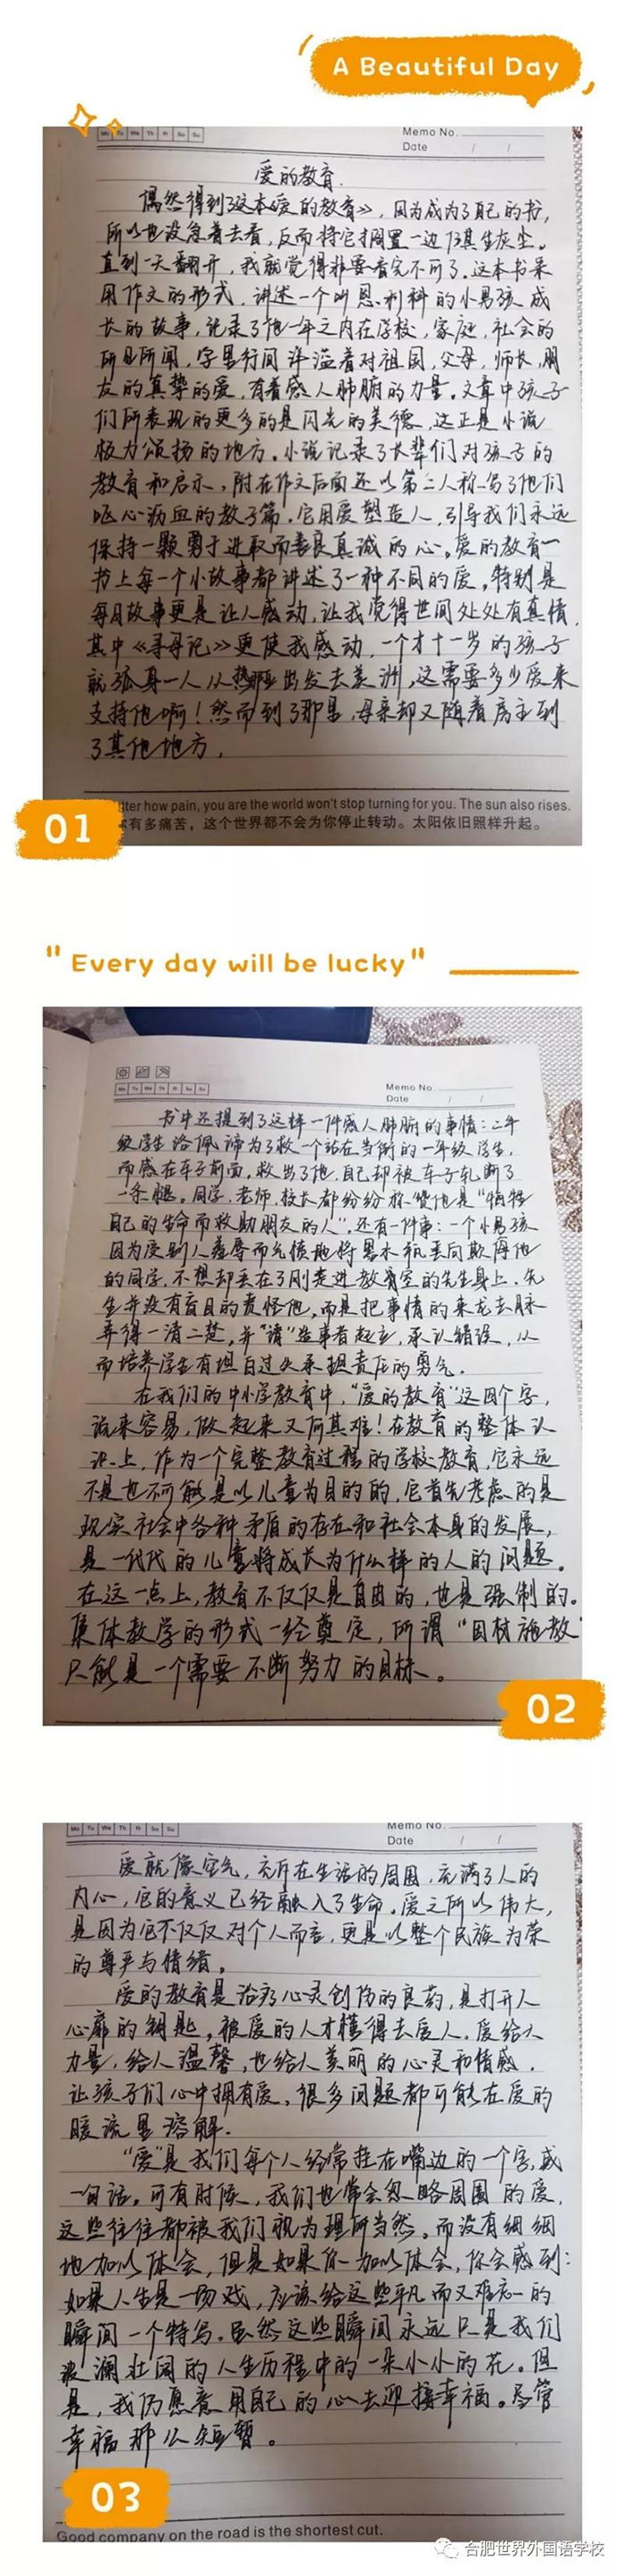 A Beautiful Day
Mo Tu We Th Fr Sa Su
Memo No.
Date / /
爱的教育.
偶然得到了这本《爱的教育》,因为成为了自己的书,
所以也没急着去看,反而将它搁置一边任其生灰尘。
直到一天翻开,我就觉得非要看完不可了。这本书采
用作文的形式,讲述一个叫恩利科的小男孩成
长的故事,记录了他一年之内在学校,家庭,社会的
所见所闻,字里行间洋溢着对祖国,父母,师长,朋
友的真挚的爱,有着感人肺腑的力量。文章中孩子
们所表现的更多的是闪光的美德,这正是小说
极力颂扬的地方。小说记录了长辈们对孩子的
教育和启示,附在作文后面还以第二人称写了他们
呕心沥血的教子篇。它用爱塑造人,引导我们永远
保持一颗勇于进取而善良真诚的心。爱的教育一
书上每一个小故事都讲述了一种不同的爱。特别是
每月故事更是让人感动,让我觉得世间处处有真情,
其中《寻母记》更使我感动,一个才十一岁的孩子
就孤身一人从热那亚出发去美洲,这需要多少爱来
支持他啊!然而到了那里,母亲却又随着房主到
了其他地方,
tter how pain, you are the world won't stop turning for you. The sun also rises.
有多痛苦,这个世界都不会为你停止转动。太阳依旧照样升起。
01
"Every day will be lucky"
Mo Tu We Th Fr Sa Su
Memo No.
Date / /
书中还提到了这样一件感人肺腑的事情:二年
级学生洛佩谛为了救一个站在当街的一年级学生,
而感在车子前面,救出了他,自己却被车子轧断了
一条腿。同学,老师,校长都纷纷称赞他是“牺牲
自己的生命而救助朋友的人”。还有一件事:一个小男孩
因为受别人羞辱而气愤地将墨水瓶丢向欺侮他
的同学,不想却丢在了刚走进教室的先生身上。先
生并没有盲目的责怪他,而是把事情的来龙去脉
弄得一清二楚,并“请”造事者起立,承认错误,从
而培养学生有坦白过失承担责任的勇气。
在我们的中小学教育中,“爱的教育”这四个字,
说来容易,做起来又何其难!在教育的整体认
识上,作为一个完整教育过程的学校教育,它永远
不是也不可能是以儿童为目的的,它首先考虑的是
现实社会中各种矛盾的存在和社会本身的发展,
是一代代的儿童将成长为什么样的人的问题。
在这一点上,教育不仅仅是自由的,也是强制的。
集体教学的形式一经奠定,所谓“因材施教”
只能是一个需要不断努力的目标。
02
Mo Tu We Th Fr Sa Su
Memo No.
Date / /
爱就像空气,充斥在生活的周围,充满了人的
内心,它的意义已经融入了生命。爱之所以伟大,
是因为它不仅仅对个人而言,更是以整个民族为荣
的尊严与情绪。
爱的教育是治疗心灵创伤的良药,是打开人
心扉的钥匙。被爱的人才懂得去爱人。爱给人
力量,给人温馨,也给人美丽的心灵和情感,
让孩子们心中拥有爱,很多问题都可能在爱的
暖流里溶解.
“爱”是我们每个人经常挂在嘴边的一个字,或
一句话。可有时候,我们也常会忽略周围的爱,
这些往往都被我们视为理所当然。而没有细细
地加以体会,但是如果你一加以体会,你会感到:
如果人生是一场戏,应该给这些平凡而又难忘的
瞬间一个特写。虽然这些瞬间永远只是我们
波澜壮阔的人生历程中的一朵小小的花。但
是,我仍愿意用自己的心去迎接幸福。尽管
幸福那么短暂。
03
Good company on the road is the shortest cut.
合肥世界外国语学校